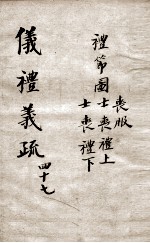 喪服
士喪禮上
士喪禮下
儀禮義疏
四十七